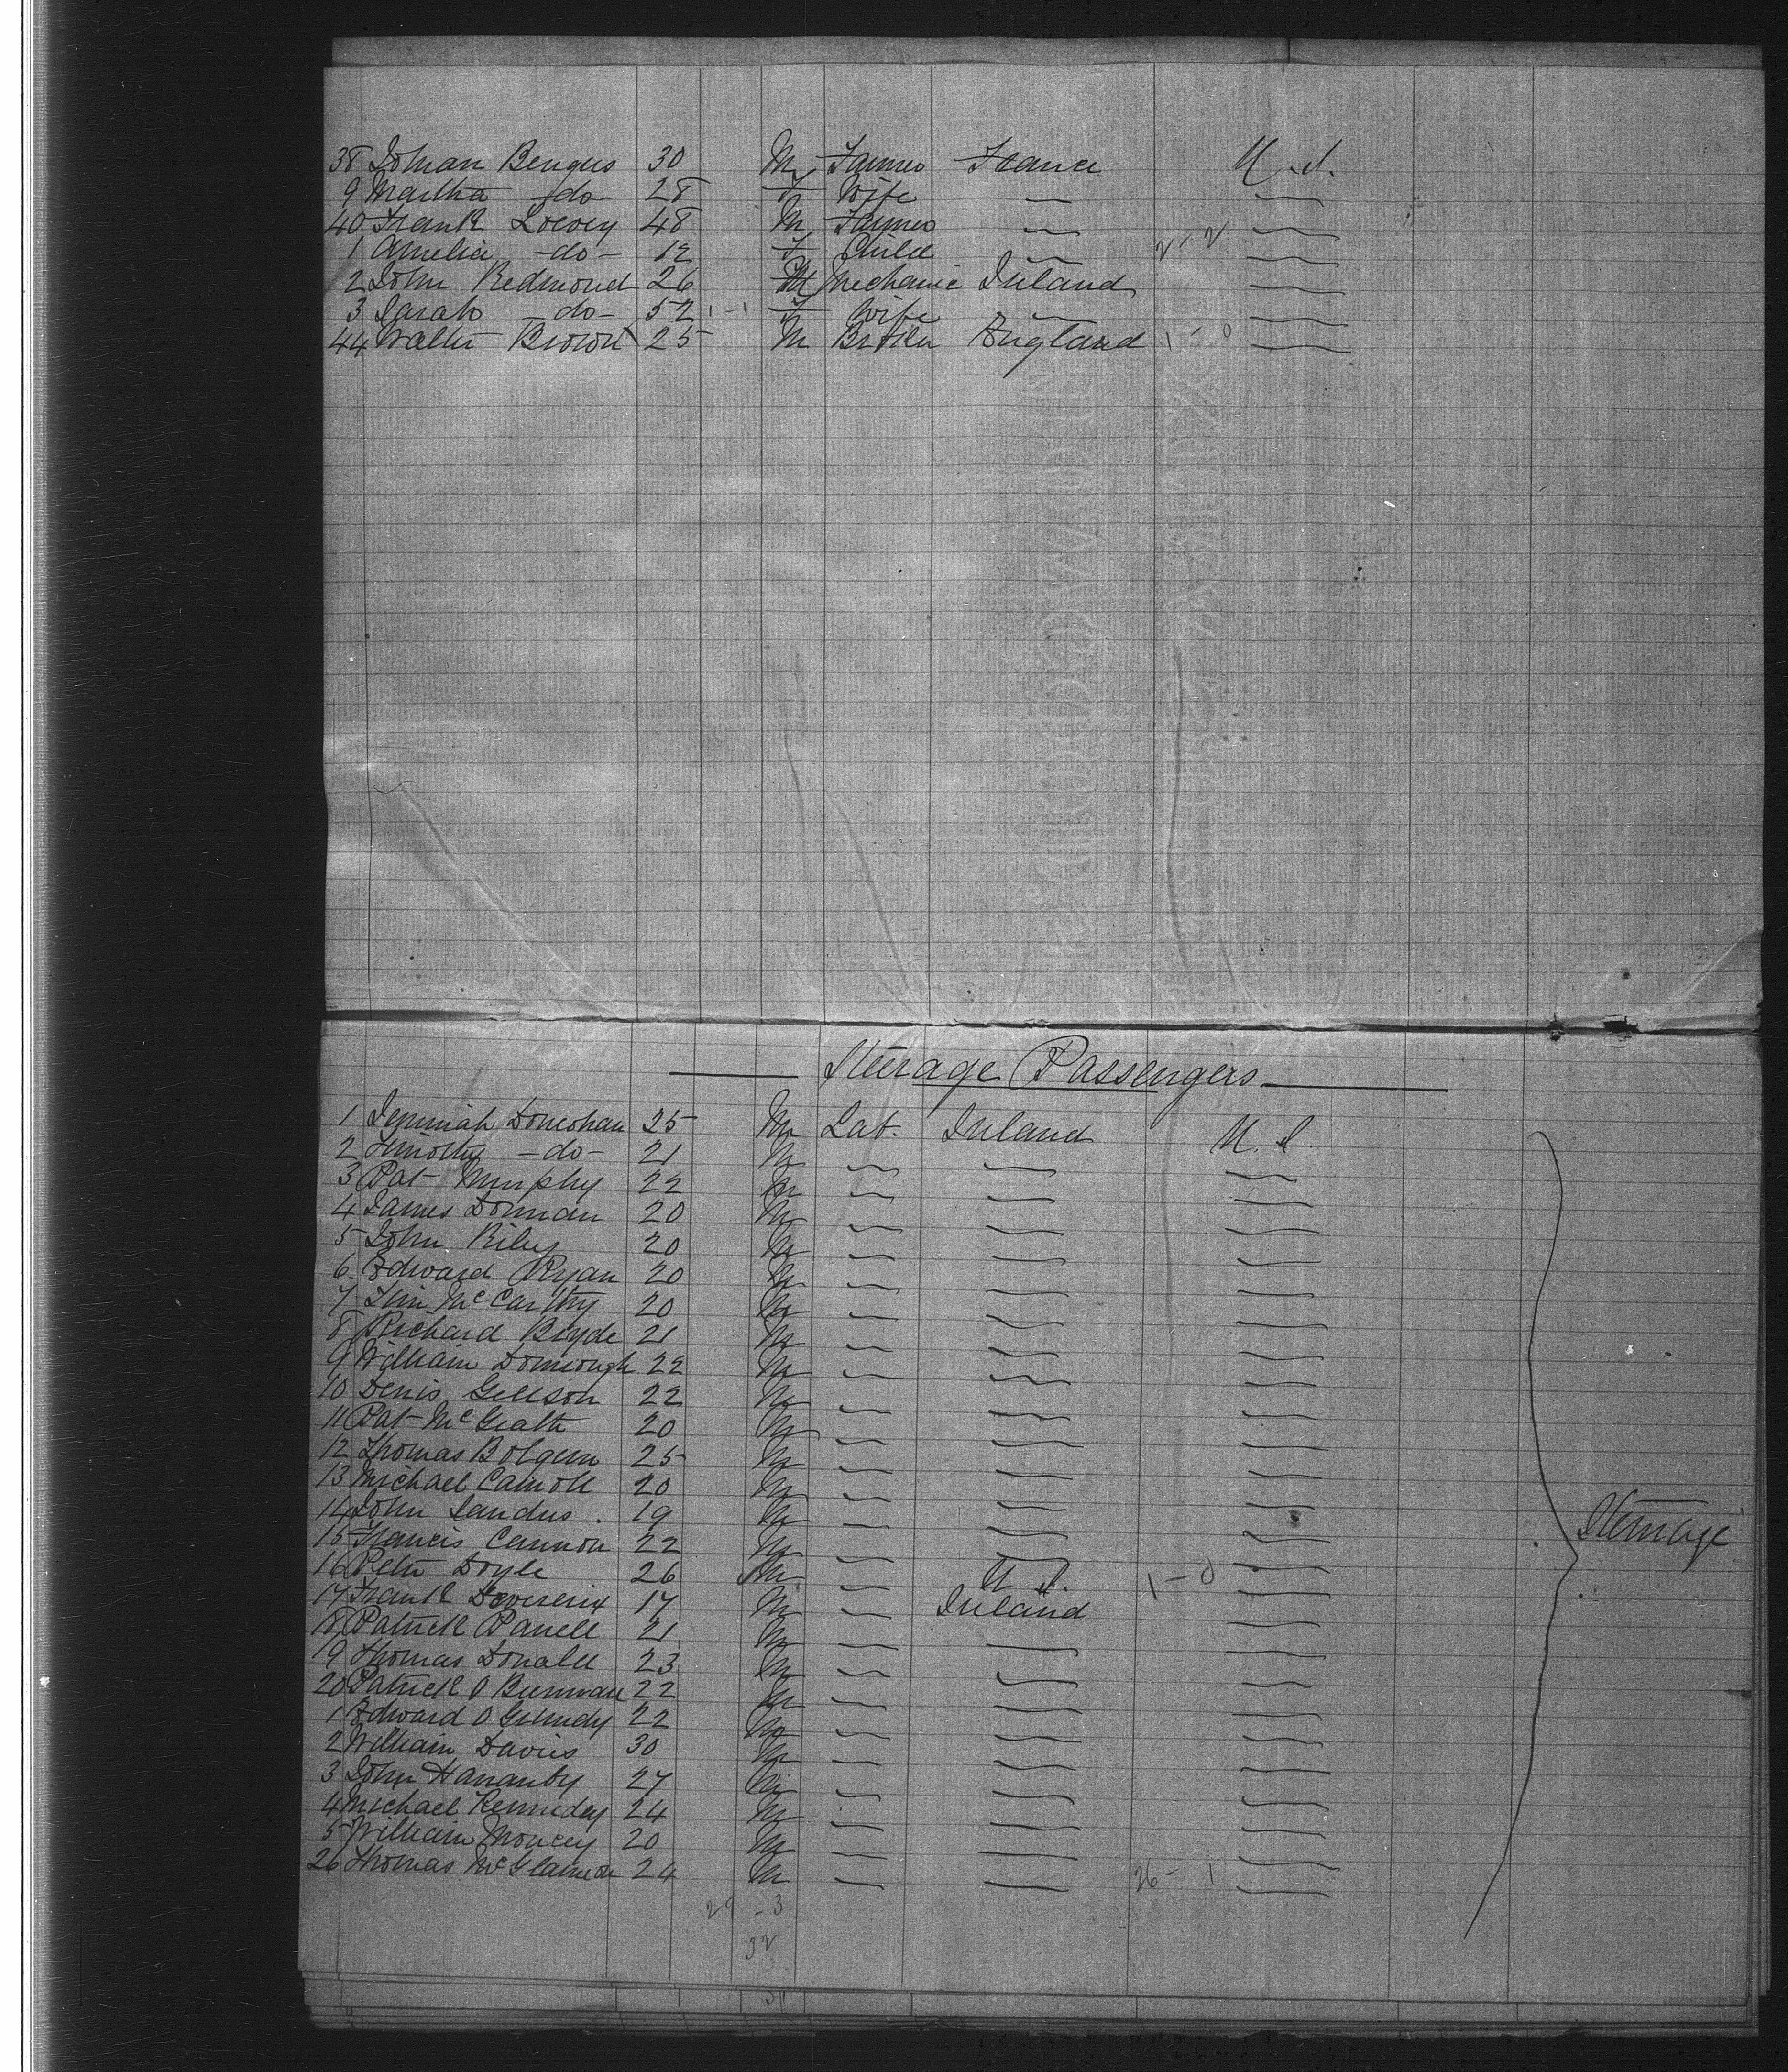 38 Johan Bengus 30 M Farmer France U.S.
9 Martha -do- 28 F Wife
40 Frank 48 M Farmer
1 Amelia -do- 12 F Child 2-2
2 John Redmond 26 M Mechanic Ireland
3 Sarah -do- 52 1-1 F Wife
44 Walter Brown 25 M Broker England 1-0
Steerage Passengers
1 Jeremiah Donohan 25 M Lab. Ireland U.S.
2 Timothy -do- 21 M
3 Pat Murphy 22 M
4 James 20 M
5 John Riley 20 M
6 Edward Ryan 20 M
7 Tim McCarthy 20 M
8 Richard Bryde 21 M
9 William 22 M
10 Denis Gleeson 22 M
11 Pat McGrath 20 M
12 Thomas Bolgern 25 M
13 Michael Carroll 20 M
14 John Landers 19 M
15 Francis Cannon 22 M Steerage
16 Peter Doyle 26 M U.S. 1-0
17 Frank 17 M Ireland
18 Patrick Parell 21 M
19 Thomas Donall 23 M
20 Patrick O 22 M
1 Edward O 22 M
2 William Davies 30 M
3 John 27 M
4 Michael Kennedy 24 M
5 William 20 M
26 Thomas 24 M 26-1
29-3
32